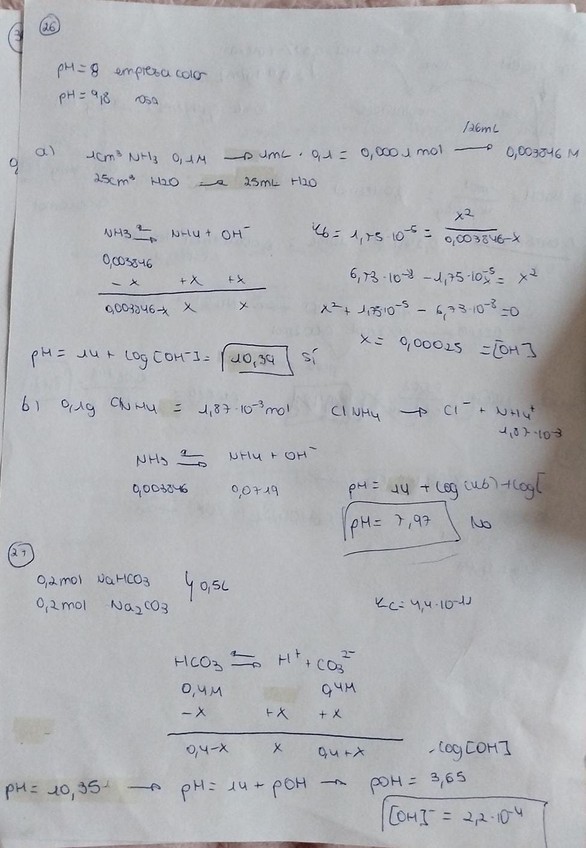 26
pH = 8 empieza color
pH = 9,8 rosa
a) 1cm³ NH3 0,1M → 1mL · 0,1 = 0,0001 mol → /26mL 0,003846 M
25cm³ H2O → 25mL H2O
NH3 ⇌ NH4 + OH⁻
0,003846
-x +x +x
0,003846-x x x
Kb = 1,75·10⁻⁵ = x² / 0,003846-x
6,73·10⁻⁸ - 1,75·10⁻⁵x = x²
x² + 1,75·10⁻⁵ - 6,73·10⁻⁸ = 0
x = 0,00025 = [OH]
pH = 14 + log[OH⁻] = 10,39 Sí
b) 0,1g ClNH4 = 1,87·10⁻³ mol ClNH4 → Cl⁻ + NH4⁺
1,87·10⁻³
NH3 ⇌ NH4 + OH⁻
0,003846 0,0719
pH = 14 + log(Kb) + log[
pH = 7,97 No
27
0,2 mol NaHCO3
0,2 mol Na2CO3
0,5L
Kc = 4,4·10⁻¹¹
HCO3 ⇌ H⁺ + CO3²⁻
0,4M 0,4M
-x +x +x
0,4-x x 0,4+x
-log[OH]
pH = 10,35 → pH = 14 + pOH → pOH = 3,65
[OH]⁻ = 2,2·10⁻⁴